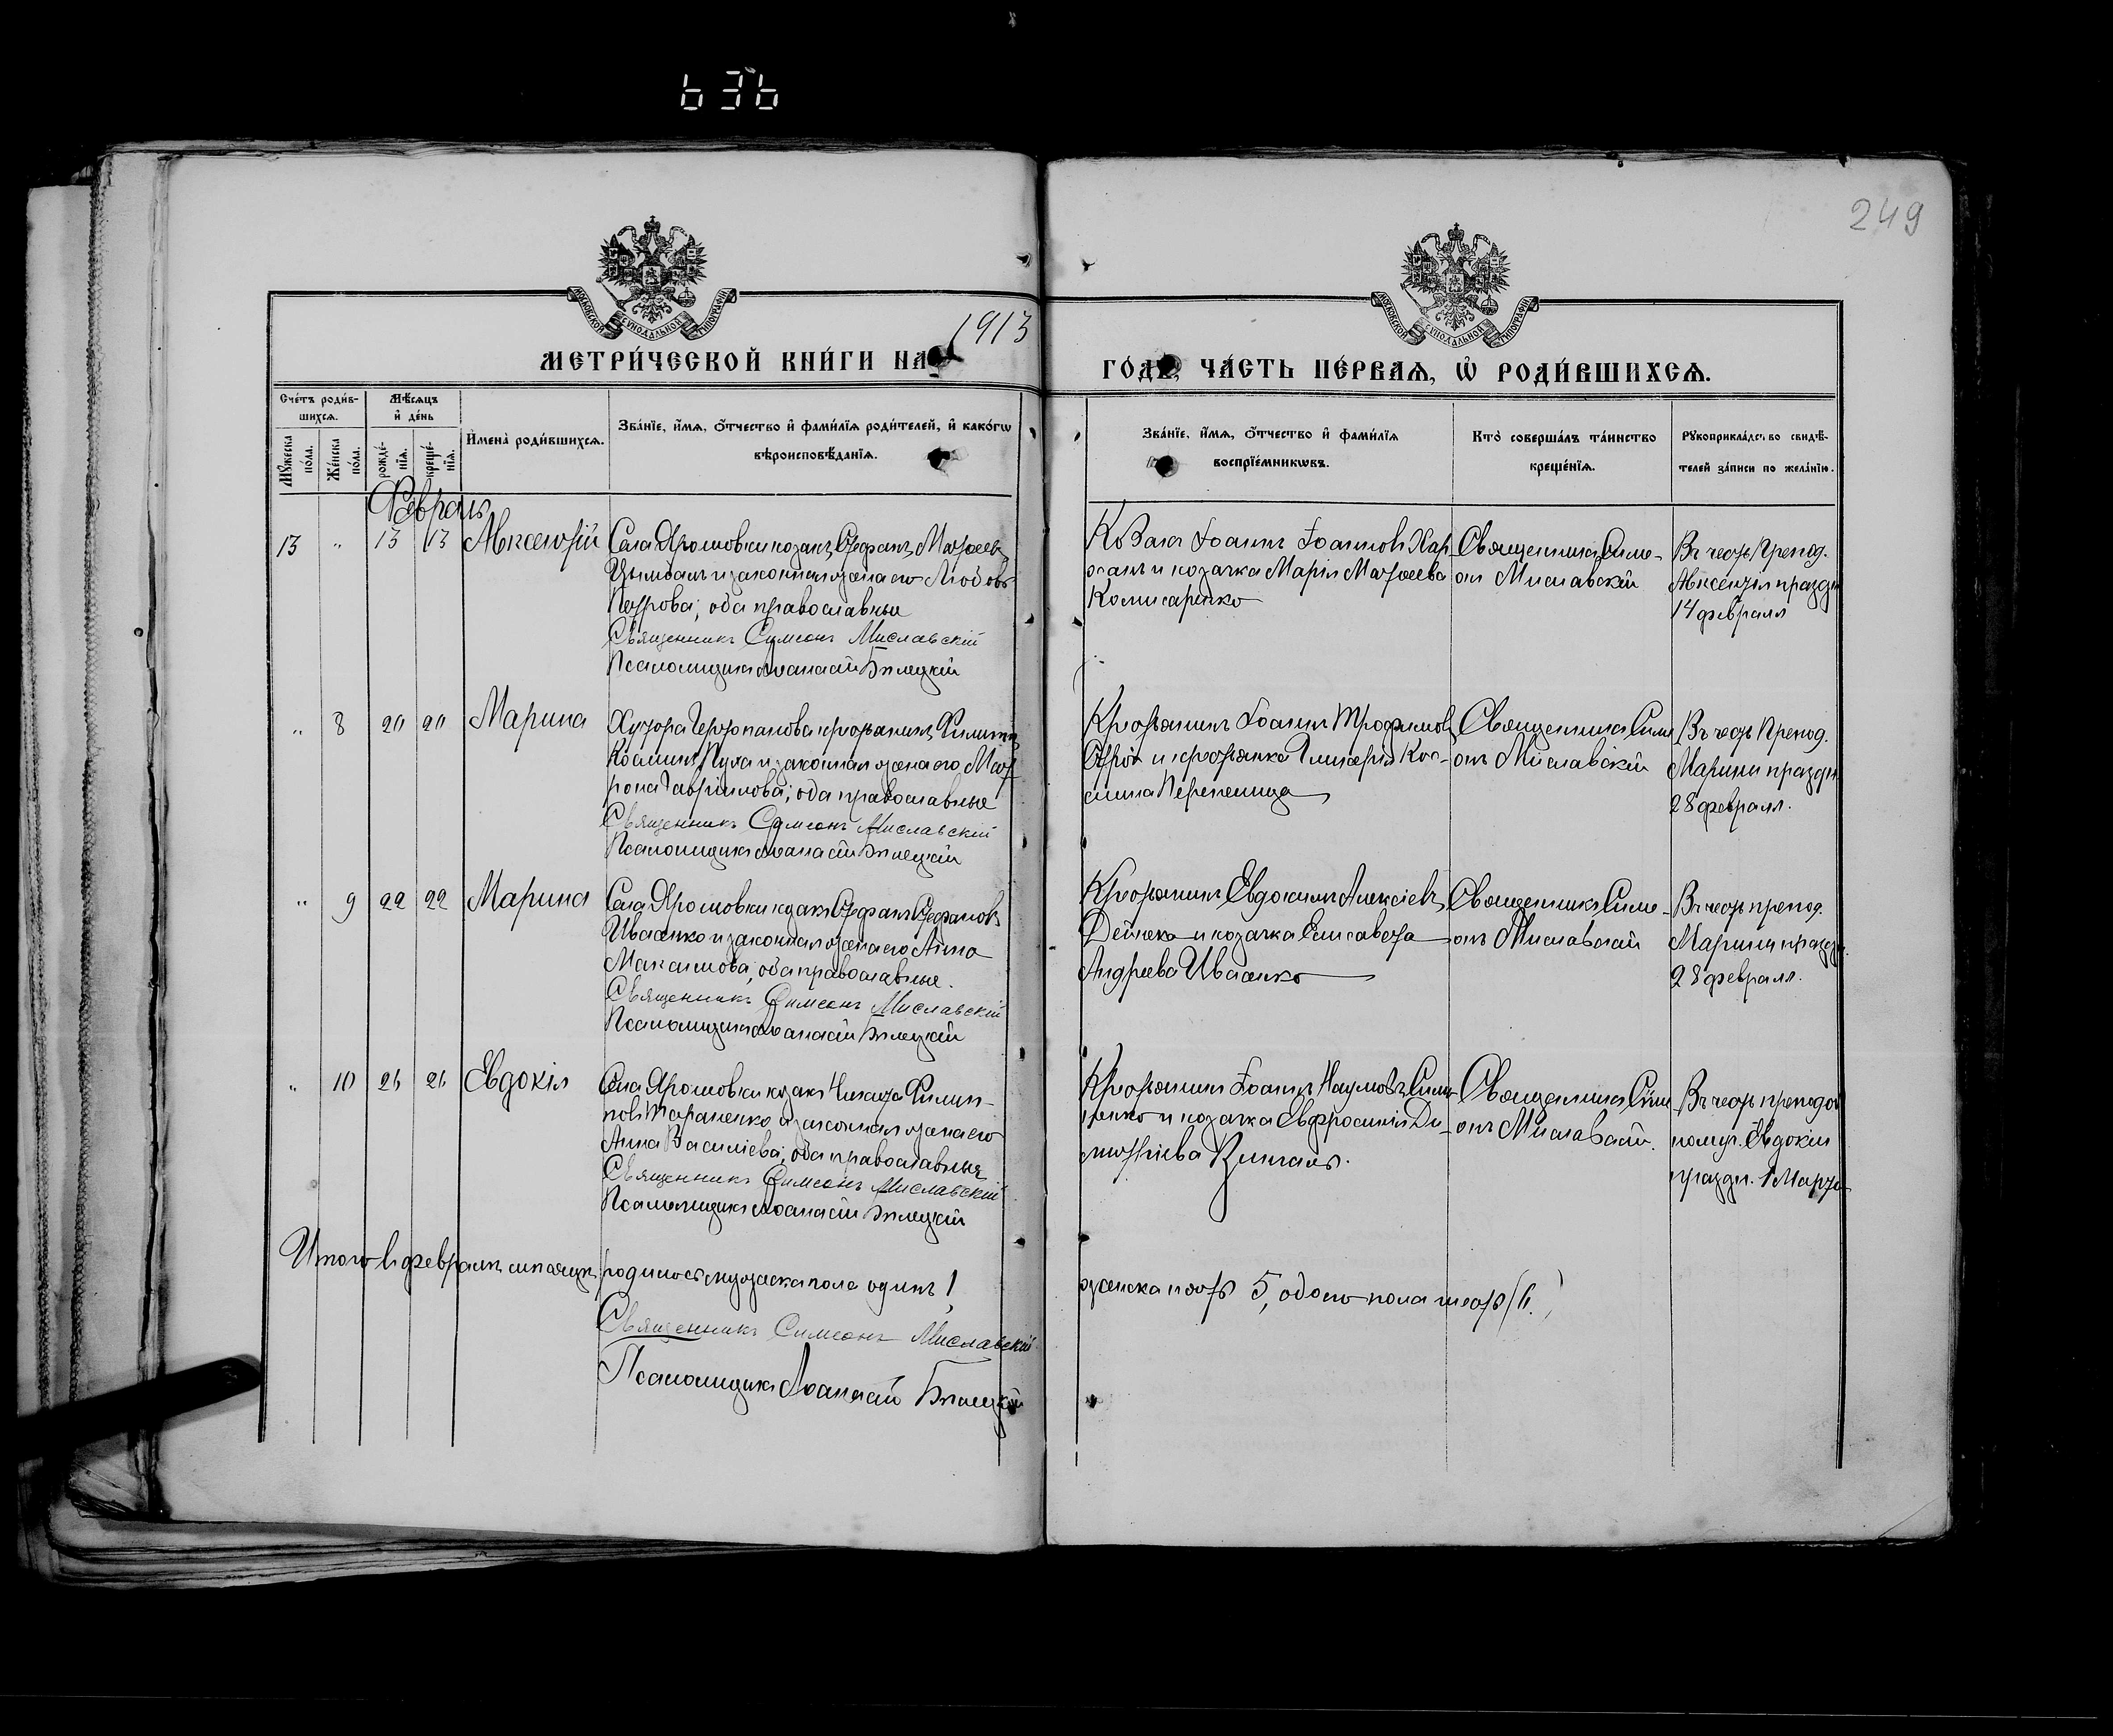 636
249
МОСКОВСКОЙ СѴНОДАЛЬНОЙ ТИПОГРАФІИ
МОСКОВСКОЙ СѴНОДАЛЬНОЙ ТИПОГРАФІИ
МЕТРИ́ЧЕСКОЙ КНИ́ГИ НА 1913
ГО́ДЪ, ЧА́СТЬ ПЕ́РВАѦ, Ѡ҆ РОДИ́ВШИХСѦ.
Сче́тъ роди́в-
шихсѧ.
Мꙋ́жеска по́ла.
Же́нска по́ла.
Мѣ́сѧцъ
и҆ де́нь
рожде́-
нїѧ.
креще́-
нїѧ.
И҆мена̀ роди́вшихсѧ.
Зва́нїе, и҆́мѧ, ѻ҆́тчество и҆ фами́лїѧ роди́телей, и҆ како́гѡ
вѣроисповѣ́данїѧ.
Зва́нїе, и҆́мѧ, ѻ҆́тчество и҆ фами́лїѧ
воспрїе́мникѡвъ.
Кто̀ соверша́лъ та́инство
креще́нїѧ.
Рꙋкоприкла́дство свидѣ́-
телей за́писи по жела́нїю.
Февраль
13 " 13 13 Авксентій
Села Ярошовки козакъ Стефанъ Матѳеевъ
Цымбалъ и законная жена его Любовь
Петрова; оба православные
Священникъ Симеонъ Миславскій
Псаломщикъ Аѳанасій Бѣлецкій
Козакъ Іоаннъ Іоанновъ
и козачка Марія Матѳеева
Комисаренко
Священникъ Симе-
онъ Миславскій
Въ честь Препод.
Авксентія праздн.
14 февраля
" 8 20 20 Марина
Хутора крестьянинъ
Косминъ и законная жена его Мат-
рона Гавриилова; оба православные
Священникъ Симеонъ Миславскій
Псаломщикъ Аѳанасій Бѣлецкій
Крестьянинъ Іоаннъ Трофимовъ
и крестьянка Гликерія Кос-
мина Перепелица
Священникъ Симе-
онъ Миславскій
Въ честь Препод.
Марины праздн.
28 февраля.
" 9 22 22 Марина
Села Ярошовки козакъ Стефанъ Стефановъ
Иваненко и законная жена его Анна
Максимова; оба православные.
Священникъ Симеонъ Миславскій
Псаломщикъ Аѳанасій Бѣлецкій
Крестьянинъ Евдокимъ Алексіевъ
Дейнека и козачка Елисавета
Андреева Иваненко
Священникъ Симе-
онъ Миславскій
Въ честь препод.
Марины праздн.
28 февраля.
" 10 26 26 Евдокія
Села Ярошовки козакъ Никита Филип-
повъ Тараненко и законная жена его
Анна Василіева; оба православные
Священникъ Симеонъ Миславскій
Псаломщикъ Аѳанасій Бѣлецкій
Крестьянинъ Іоаннъ Наумовъ
и козачка Евфросинія Ди-
митріева
Священникъ Симе-
онъ Миславскій.
Въ честь преподоб
номуч. Евдокіи
праздн. 1 Марта
Итого въ февралѣ мѣсяцѣ родилось мужеска пола одинъ 1,
женска пять 5, обоего пола шесть (6.)
Священникъ Симеонъ Миславскій
Псаломщикъ Аѳанасій Бѣлецкій